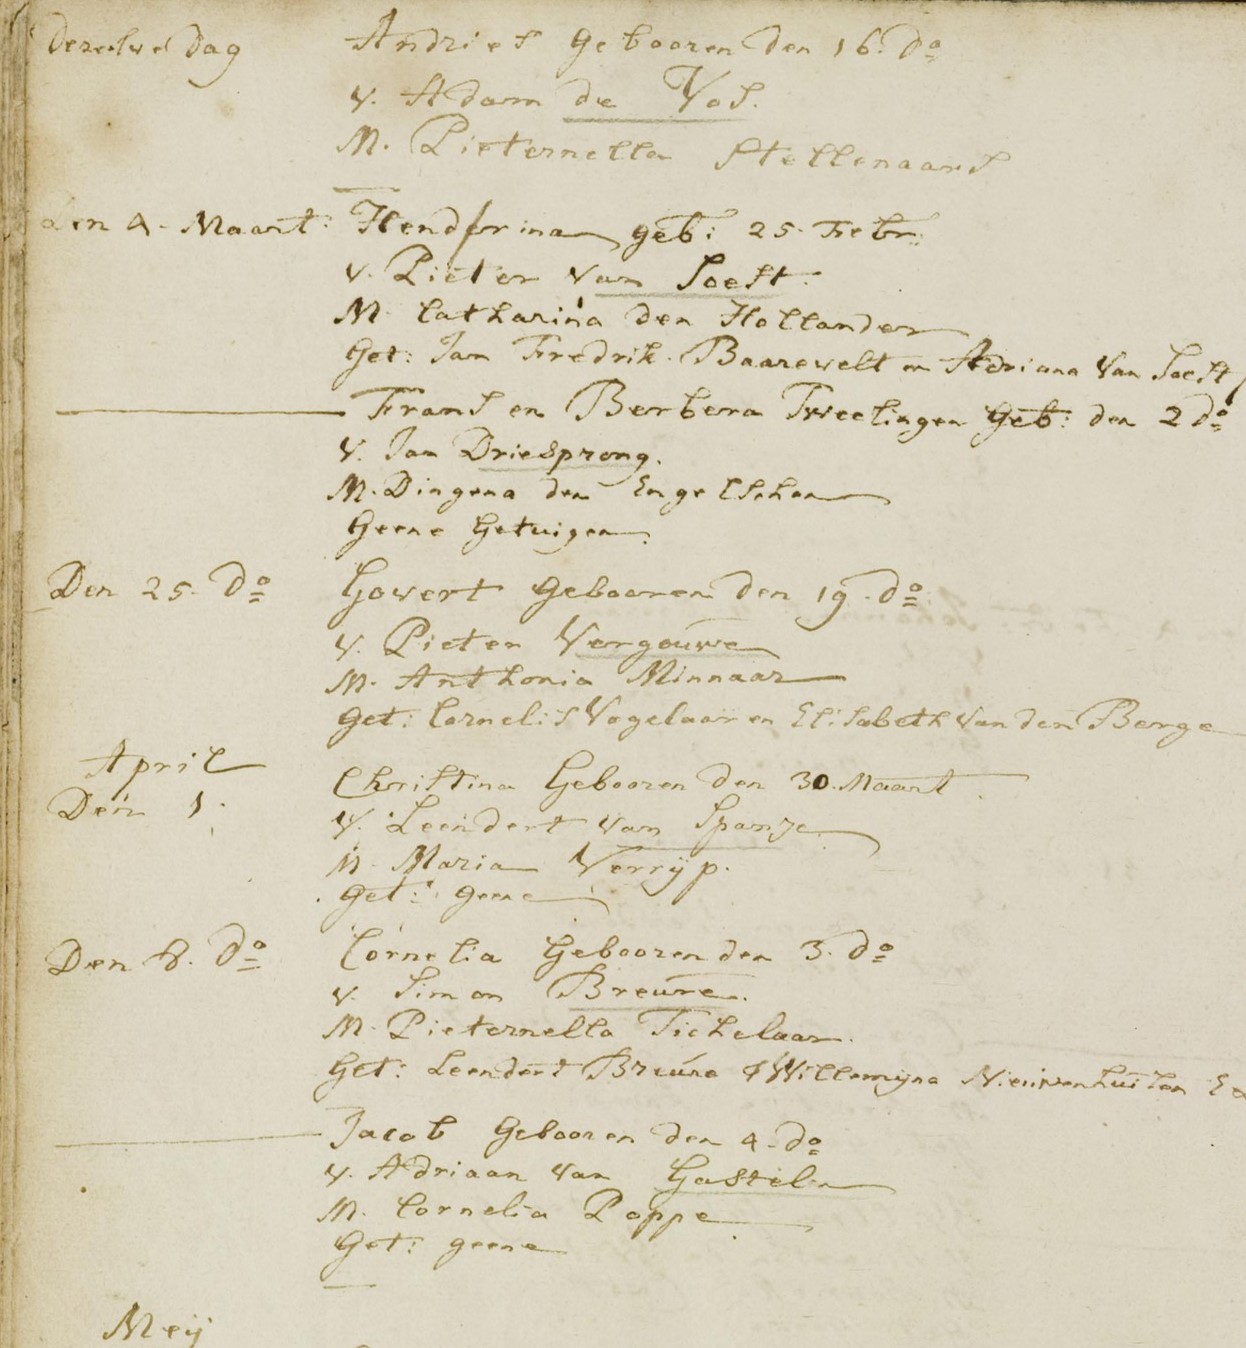 Dezelve Dag Andries Gebooren Den 16. Do
V. Adam de Vos.
M. Pieternella Stellenaars
Den 4. Maart: Hendrina geb: 25. Febr:
V. Pieter Van Soest.
M. Catharina den Hollander
Get: Jan Fredrik Baarewelt en Adriana Van Soest
Frans en Berbera Tweelingen Geb: den 2 do
V. Jan Driesprong.
M. Dingena den Engelschen
Geene Getuigen.
Den 25. Do Govert Gebooren Den 19. do
V. Pieter Vergouwe
M. Anthonia Minnaar
Get: Cornelis Vogelaar en Elisabeth Van den Berge
April
Den 1. Christina Gebooren Den 30. Maart
V. Leendert van Spanje
M. Maria Verryp.
Get: geene
Den 8. Do Cornelia Gebooren den 3. do
V. Simon Breure.
M. Pieternella Tichelaar.
Get: Leendert Breure & Willemyna Nieuwenhuisen
Jacob Gebooren den 4. do
V. Adriaan Van Gastel
M. Cornelia Poppe
Get: geene
Meij